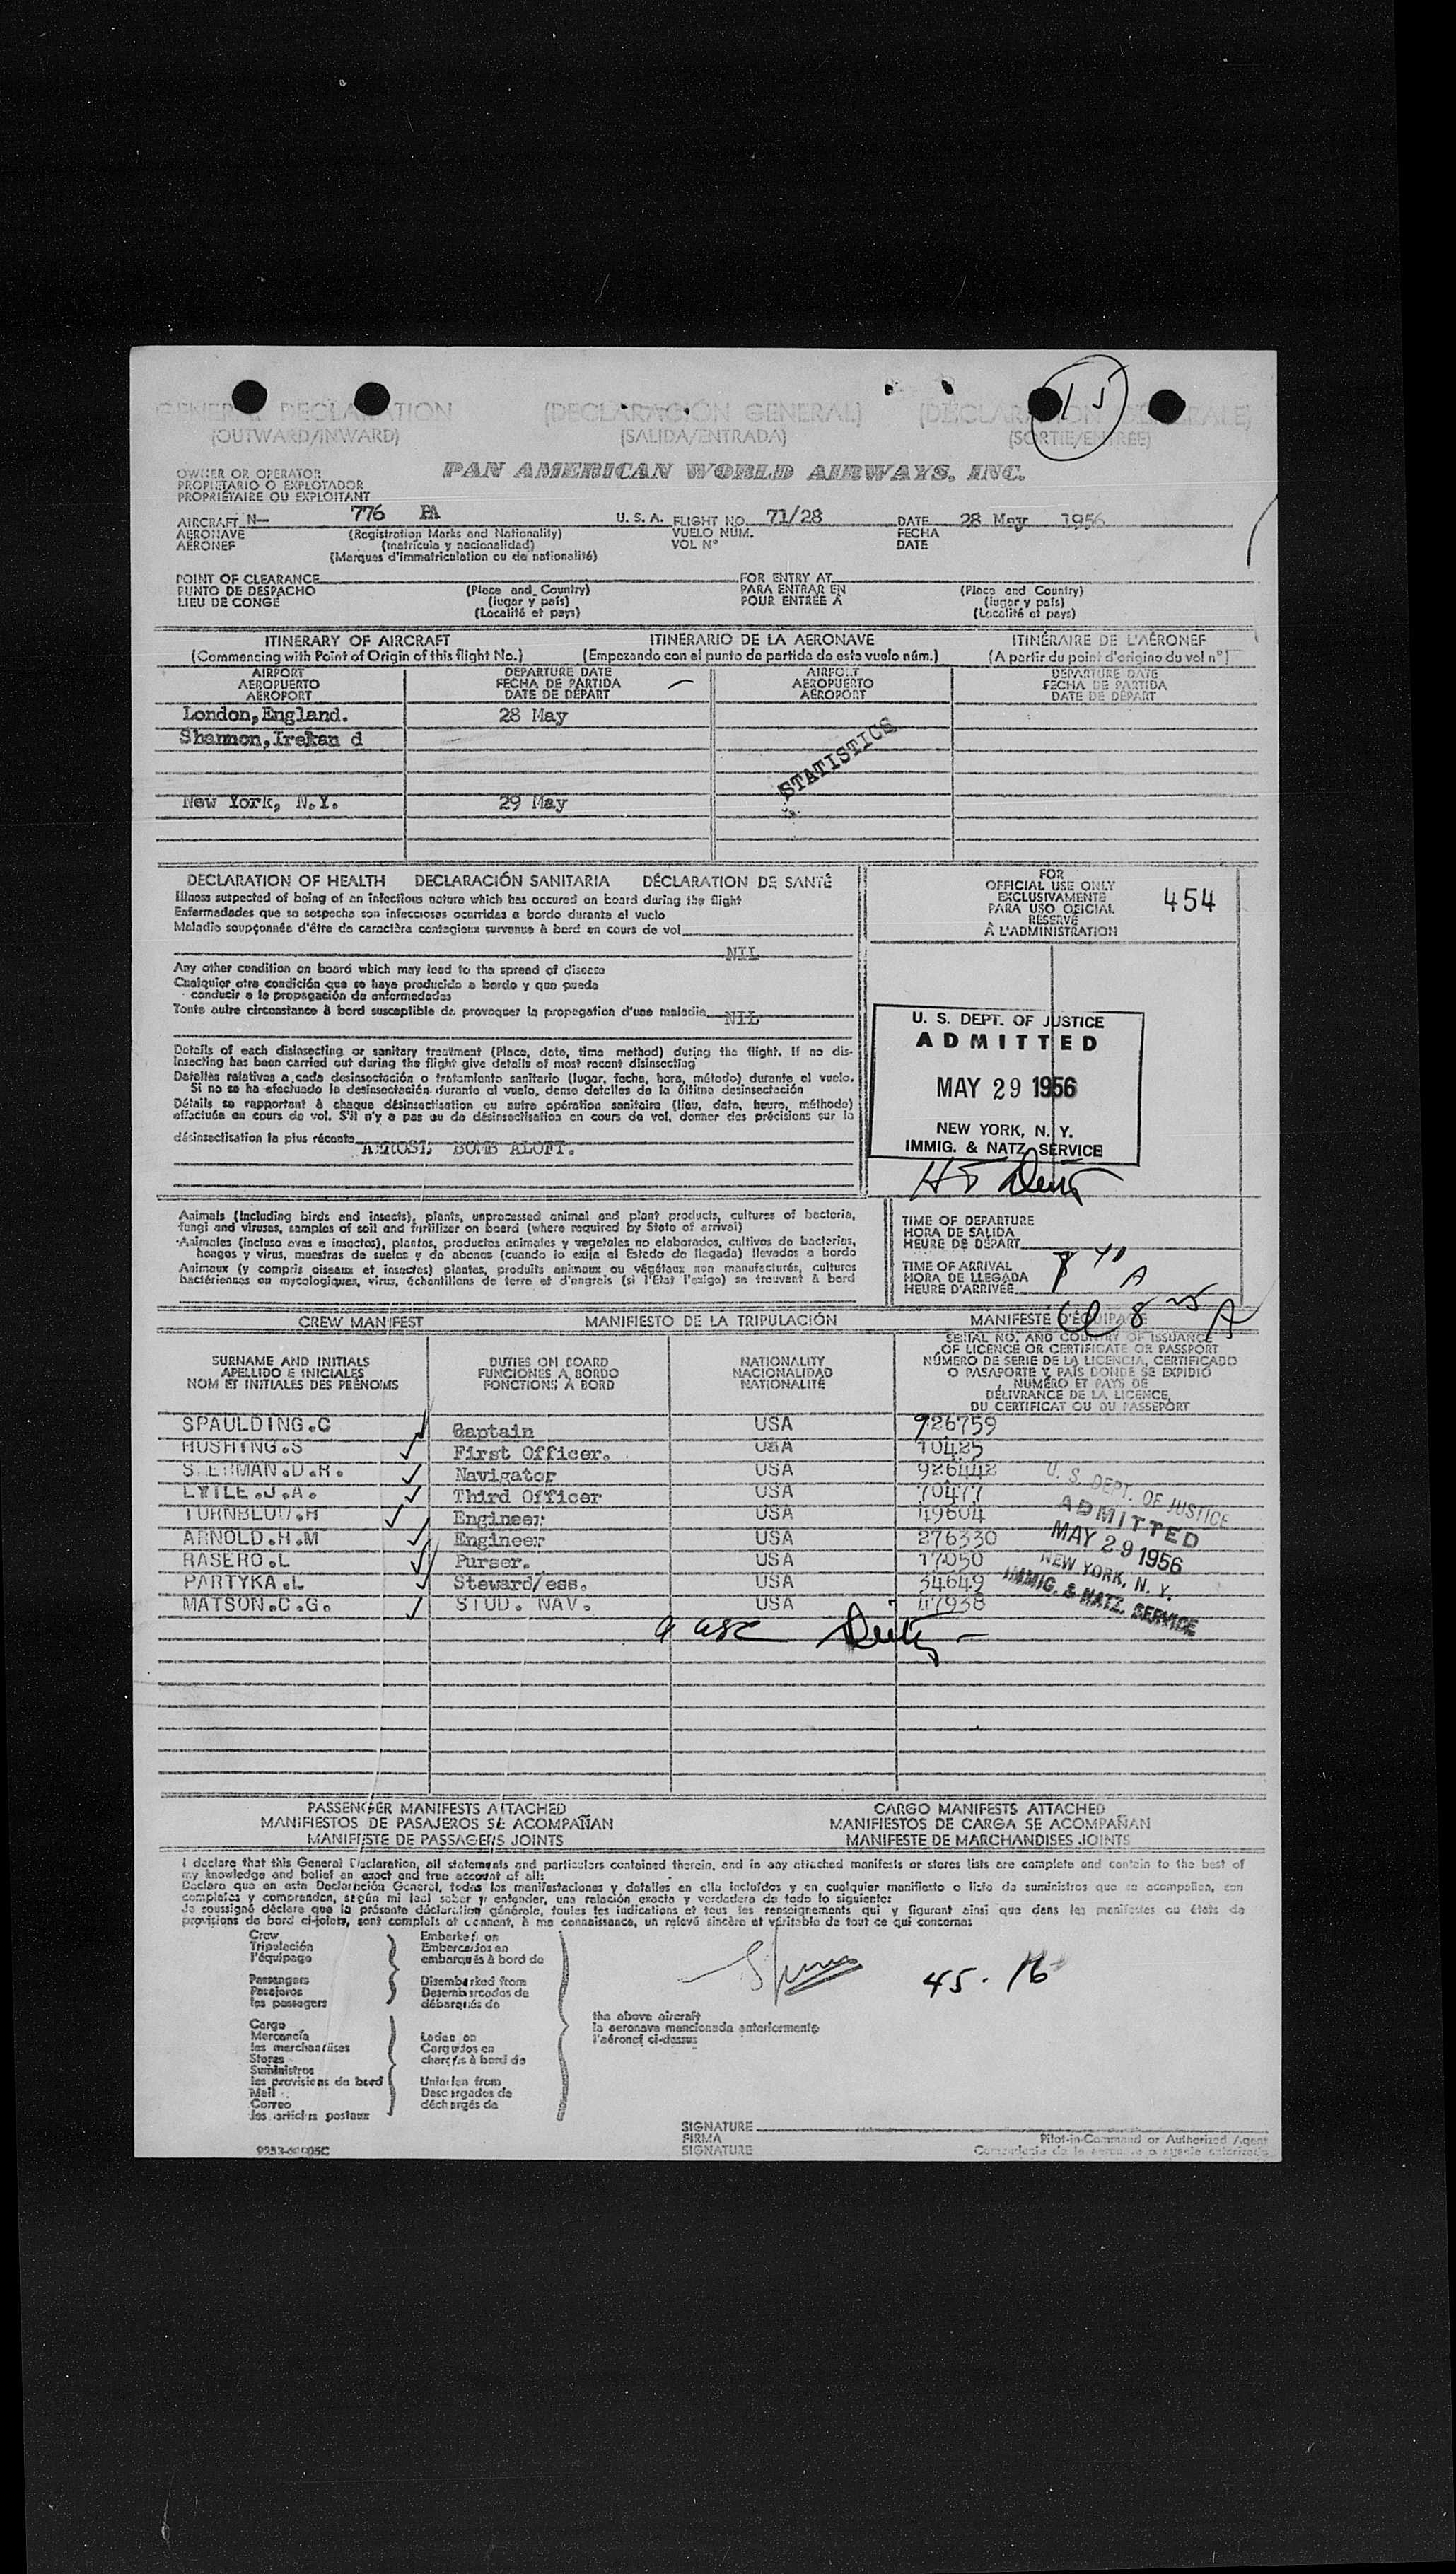 15
GENERAL DECLARATION (DECLARACIÓN GENERAL) (DÉCLARATION GÉNÉRALE)
(OUTWARD/INWARD) (SALIDA/ENTRADA) (SORTIE/ENTRÉE)
OWNER OR OPERATOR PAN AMERICAN WORLD AIRWAYS, INC.
PROPIETARIO O EXPLOTADOR
PROPRIÉTAIRE OU EXPLOITANT
AIRCRAFT N— 776 PA U. S. A. FLIGHT NO. 71/28 DATE 28 May 1956
AERONAVE (Registration Marks and Nationality) VUELO NUM. FECHA
AÉRONEF (matrícula y nacionalidad) VOL Nº DATE
(Marques d'immatriculation ou de nationalité)
POINT OF CLEARANCE FOR ENTRY AT
PUNTO DE DESPACHO (Place and Country) PARA ENTRAR EN (Place and Country)
LIEU DE CONGÉ (lugar y país) POUR ENTRÉE À (lugar y país)
(Localité et pays) (Localité et pays)
ITINERARY OF AIRCRAFT ITINERARIO DE LA AERONAVE ITINÉRAIRE DE L'AÉRONEF
(Commencing with Point of Origin of this flight No.) (Empezando con el punto de partida de este vuelo núm.) (A partir du point d'origine du vol nº)
AIRPORT DEPARTURE DATE AIRPORT DEPARTURE DATE
AEROPUERTO FECHA DE PARTIDA AEROPUERTO FECHA DE PARTIDA
AÉROPORT DATE DE DÉPART AÉROPORT DATE DE DÉPART
London,England. 28 May
Shannon,Irekan d
STATISTICS
New York, N.Y. 29 May
DECLARATION OF HEALTH DECLARACIÓN SANITARIA DÉCLARATION DE SANTÉ
Illness suspected of being of an infectious nature which has occured on board during the flight
Enfermedades que se sospecha son infecciosas ocurridas a bordo durante el vuelo
Maladie soupçonnée d'être de caractère contagieux survenue à bord en cours de vol
NIL
Any other condition on board which may lead to the spread of disease
Cualquier otra condición que se haya producido a bordo y que pueda
conducir a la propagación de enfermedades
Toute autre circonstance à bord susceptible de provoquer la propagation d'une maladie NIL
Details of each disinsecting or sanitary treatment (Place, date, time method) during the flight. If no dis-
insecting has been carried out during the flight give details of most recent disinsecting
Detalles relativos a cada desinsectación o tratamiento sanitario (lugar, fecha, hora, método) durante el vuelo.
Si no se ha efectuado la desinsectación durante el vuelo, dense detalles de la última desinsectación
Détails se rapportant à chaque désinsectisation ou autre opération sanitaire (lieu, date, heure, méthode)
effectuée en cours de vol. S'il n'y a pas eu de désinsectisation en cours de vol, donner des précisions sur la
désinsectisation la plus récente
AEROSL BOMB ALOFT.
FOR
OFFICIAL USE ONLY
EXCLUSIVAMENTE
PARA USO OFICIAL
RÉSERVÉ
À L'ADMINISTRATION
454
U. S. DEPT. OF JUSTICE
ADMITTED
MAY 29 1956
NEW YORK, N. Y.
IMMIG. & NATZ. SERVICE
Animals (including birds and insects), plants, unprocessed animal and plant products, cultures of bacteria,
fungi and viruses, samples of soil and fertilizer on board (where required by State of arrival)
Animales (incluso aves e insectos), plantas, productos animales y vegetales no elaborados, cultivos de bacterias,
hongos y virus, muestras de suelos y de abonos (cuando lo exija el Estado de llegada) llevados a bordo
Animaux (y compris oiseaux et insectes) plantes, produits animaux ou végétaux non manufacturés, cultures
bactériennes ou mycologiques, virus, échantillons de terre et d'engrais (si l'Etat l'exige) se trouvant à bord
TIME OF DEPARTURE
HORA DE SALIDA
HEURE DE DÉPART
TIME OF ARRIVAL
HORA DE LLEGADA
HEURE D'ARRIVÉE
A
8 25 A
CREW MANIFEST MANIFIESTO DE LA TRIPULACIÓN MANIFESTE D'ÉQUIPAGE
SURNAME AND INITIALS DUTIES ON BOARD NATIONALITY
APELLIDO E INICIALES FUNCIONES A BORDO NACIONALIDAD
NOM ET INITIALES DES PRÉNOMS FONCTIONS À BORD NATIONALITÉ
SERIAL NO. AND COUNTRY OF ISSUANCE
OF LICENCE OR CERTIFICATE OR PASSPORT
NÚMERO DE SERIE DE LA LICENCIA, CERTIFICADO
O PASAPORTE Y PAÍS DONDE SE EXPIDIÓ
NUMÉRO ET PAYS DE
DÉLIVRANCE DE LA LICENCE,
DU CERTIFICAT OU DU PASSEPORT
SPAULDING.C Captain USA 926759
HUSHING.S First Officer. USA 10425
SHERMAN.D.R. Navigator USA 926442
LYTLE.J.A. Third Officer USA 70477
TURNBLOW.H Engineer USA 49604
ARNOLD.H.M Engineer USA 276330
RASERO.L Purser. USA 17050
PARTYKA.L Steward/ess. USA 34649
MATSON.C.G. STUD. NAV. USA 47938
U. S. DEPT. OF JUSTICE
ADMITTED
MAY 29 1956
NEW YORK, N. Y.
IMMIG. & NATZ. SERVICE
9 usc
PASSENGER MANIFESTS ATTACHED CARGO MANIFESTS ATTACHED
MANIFIESTOS DE PASAJEROS SE ACOMPAÑAN MANIFIESTOS DE CARGA SE ACOMPAÑAN
MANIFESTE DE PASSAGERS JOINTS MANIFESTE DE MARCHANDISES JOINTS
I declare that this General Declaration, all statements and particulars contained therein, and in any attached manifests or stores lists are complete and contain to the best of
my knowledge and belief an exact and true account of all:
Declaro que en esta Declaración General, todas las manifestaciones y detalles en ella incluídos y en cualquier manifiesto o lista de suministros que se acompañen, son
completos y comprenden, según mi leal saber y entender, una relación exacta y verdadera de todo lo siguiente:
Je soussigné déclare que la présente déclaration générale, toutes les indications et tous les renseignements qui y figurent ainsi que dans les manifestes ou états de
provisions de bord ci-joints, sont complets et donnent, à ma connaissance, un relevé sincère et véritable de tout ce qui concerne:
Crew Embarked on
Tripulación Embarcados en
l'équipage embarqués à bord de
Passengers Disembarked from
Pasajeros Desembarcados de
les passagers débarqués de
45. 16
the above aircraft
la aeronave mencionada anteriormente
l'aéronef ci-dessus
Cargo
Mercancía Laden on
les marchandises Cargados en
Stores chargés à bord de
Suministros
les provisions de bord Unladen from
Mail Descargados de
Correo déchargés de
les articles postaux
SIGNATURE
FIRMA Pilot-in-Command or Authorized Agent
SIGNATURE